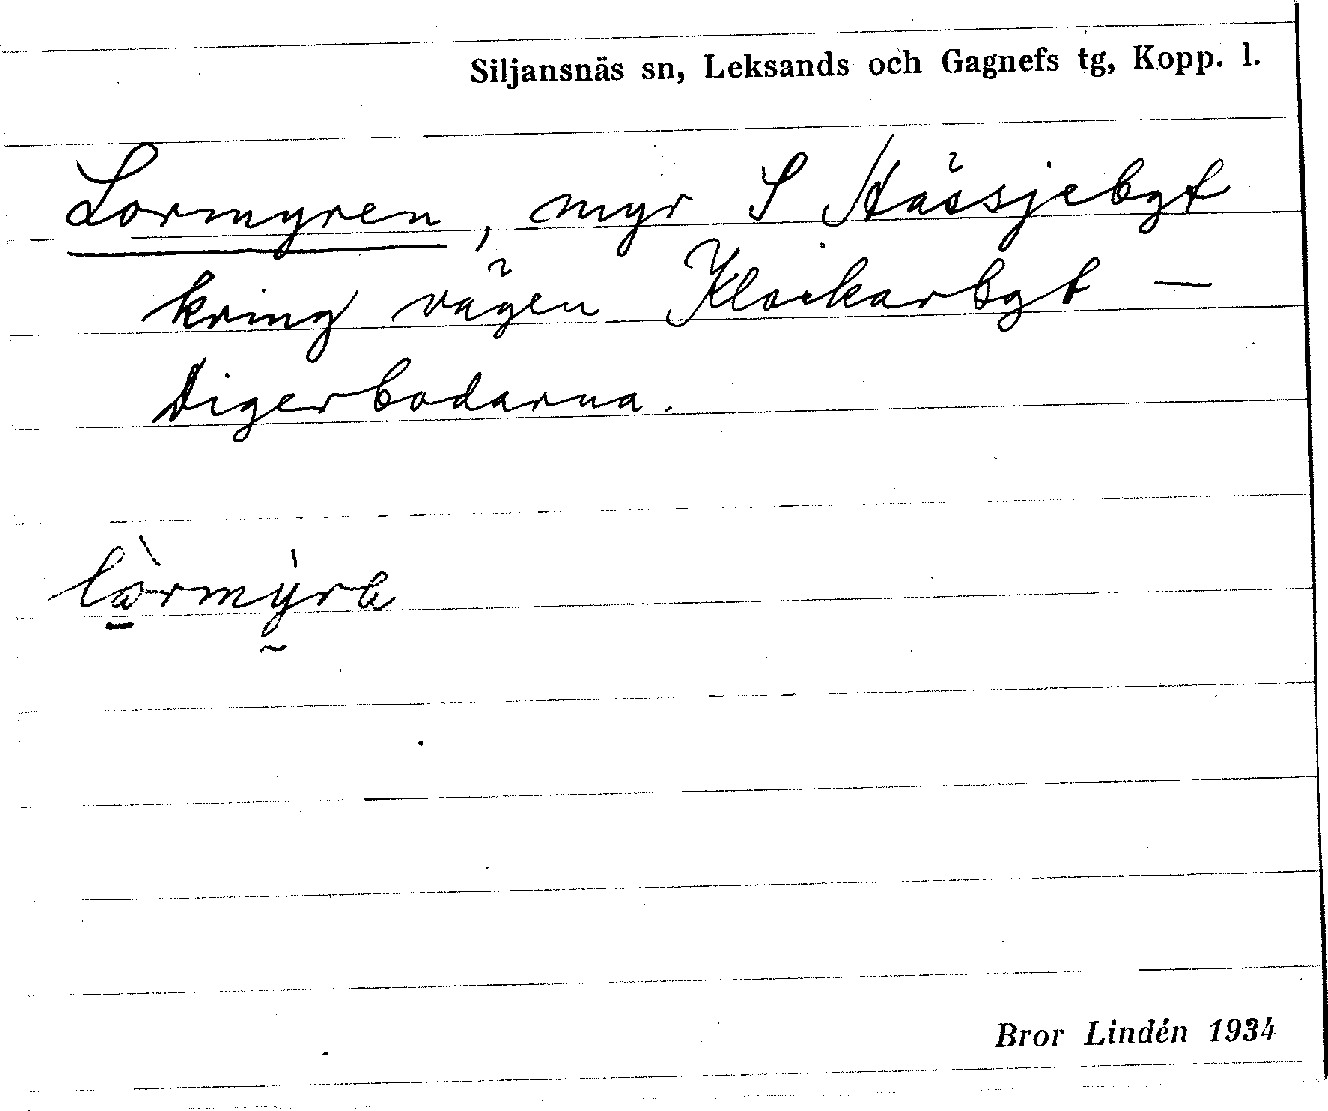 Siljansnäs sn, Leksands och Gagnefs tg, Kopp. l.
Lormyren, myr S Hässjebgt
kring vägen Klockarbgt —
Digerbodarna.
lòrmýra
Bror Lindén 1934